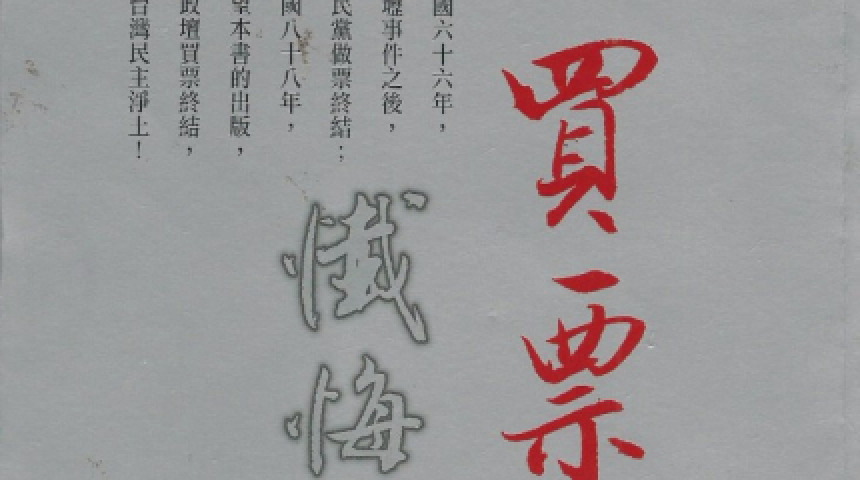 買票
懺悔
國六十六年，
壢事件之後，
民黨做票終結；
國八十八年，
望本書的出版，
政壇買票終結，
台灣民主淨土！